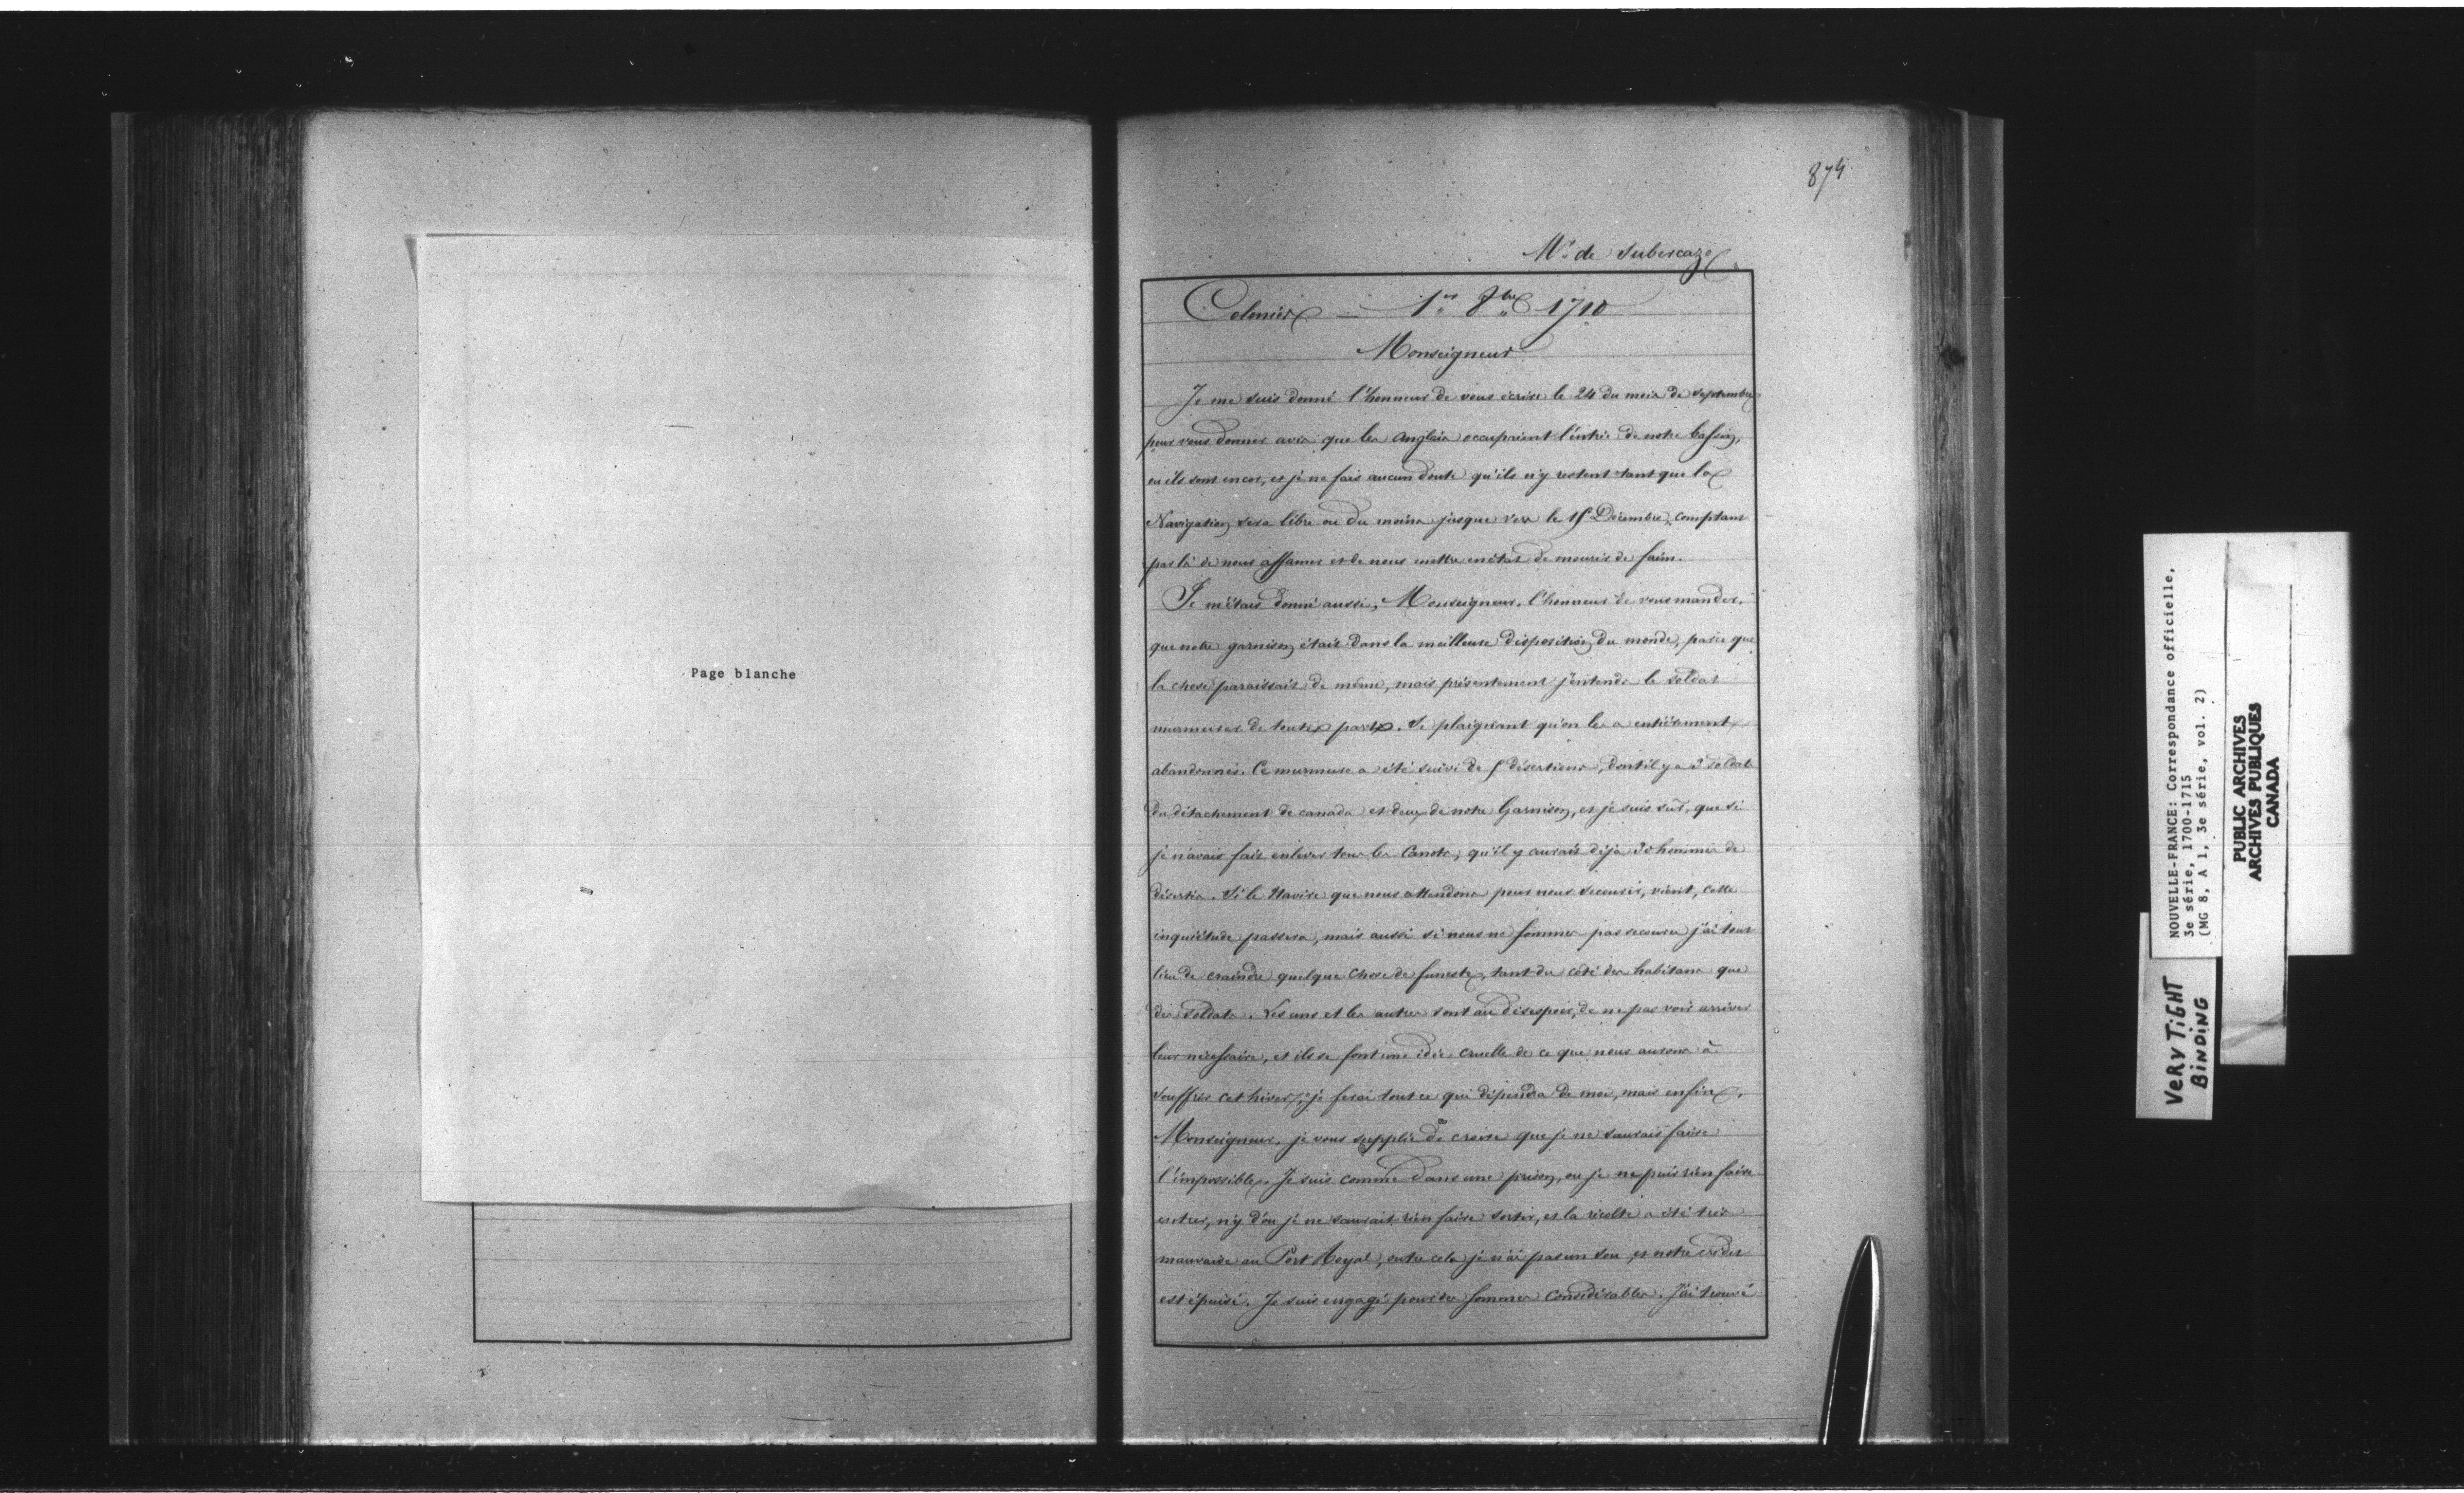 Page blanche
874
Mr. de Subercaze
Colonies — 1er 8bre 1710
Monseigneur
Je me suis donné l'honneur de vous écrire le 24 du mois de Septembre
pour vous donner avis que les anglais occupaient l'entrée de notre bassin,
ou ils sont encor, et je ne fais aucun doute qu'ils n'y restent tant que la
Navigation sera libre ou du moins jusque vers le 15 Décembre, comptant
par là de nous affamer et de nous mettre en état de mourir de faim.
Je m'étais donné aussi, Monseigneur, l'honneur de vous mander,
que notre garnison était dans la meilleure disposition du monde, parce que
la chose paraissait de même, mais présentement j'entends le soldat
murmurer de toutes parts. Se plaignant qu'on les a entièrement
abandonnés. Ce murmure a été suivi de 5 désertions, dont il y a 3 soldats
du détachement de canada et deux de notre Garnison, et je suis sûr, que si
je n'avais fait enlever tous les Canots, qu'il y aurait déja 30 hommes de
désertés. Si le Navire que nous attendons pour nous secourir, vient, cette
inquiétude passera, mais aussi si nous ne sommes pas secourus j'ai tout
lieu de craindre quelque chose de funeste, tant du coté des habitans que
des soldats. Les uns et les autres sont au désespoir, de ne pas voir arriver
leur nécessaire, et ils se font une idée cruelle de ce que nous aurons à
souffrir cet hiver, je ferai tout ce qui dépendra de moi, mais enfin,
Monseigneur, je vous supplie de croire que je ne saurais faire
l'impossible. Je suis comme dans une prison, ou je ne puis rien faire
entrer, n'y d'ou je ne saurait rien faire sortir, et la récolte a été très
mauvaise au Port Royal, outre cela je n'ai pas un sou et notre crédit
est épuisé. Je suis engagé pour des sommes considérables. J'ai trouvé
NOUVELLE-FRANCE: Correspondance officielle,
3e série, 1700-1715
(MG 8, A 1, 3e série, vol. 2)
PUBLIC ARCHIVES
ARCHIVES PUBLIQUES
CANADA
VERY TIGHT
BINDING